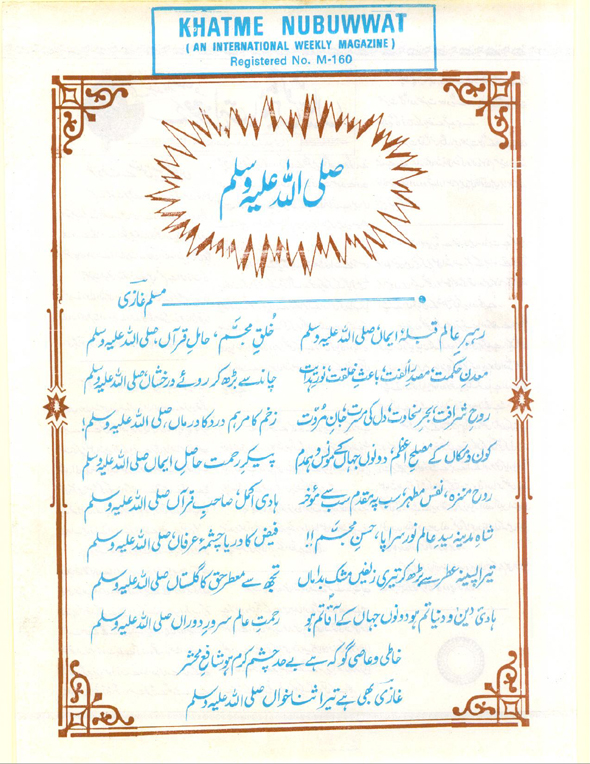 KHATME NUBUWWAT
(AN INTERNATIONAL WEEKLY MAGAZINE)
Registered No. M-160
صلی اللہ علیہ وسلم
مسلم غازی
رہبرِ عالم قبلۂ ایماں صلی اللہ علیہ وسلم خُلقِ مجسَّم، حاملِ قرآں، صلی اللہ علیہ وسلم
معدنِ حکمت مصدرِ اُلفت، باعثِ خلقت، نورِ ہدایت چاند سے بڑھ کر روئے درخشاں، صلی اللہ علیہ وسلم
روحِ شرافت، بحرِ سخاوت، دل کی مسرت جانِ مُروّت زخم کا مرہم درد کا درماں، صلی اللہ علیہ وسلم!
کون و مکاں کے مصلحِ اعظم، دونوں جہاں کے مونس و ہمدم پیکرِ رحمت حاصلِ ایماں صلی اللہ علیہ وسلم
روحِ منزہ، نفسِ مطہر، سب پہ مقدم سب سے مؤخر ہادیِ اکمل، صاحبِ قرآں صلی اللہ علیہ وسلم
شاہِ مدینہ سیدِ عالم نور سراپا، حسنِ مجسَّم!! فیض کا دریا چشمۂ عرفاں، صلی اللہ علیہ وسلم
تیرا پسینہ عطر سے بڑھ کر تیری زلفیں مشک بداماں تجھ سے معطر حق کا گلستاں صلی اللہ علیہ وسلم
ہادیِ دین و دنیا تم ہو دونوں جہاں کے آقا تم ہو رحمتِ عالم سرورِ دوراں صلی اللہ علیہ وسلم
خاطی و عاصی گو کہ ہے بے حد چشمِ کرم ہو شافعِ محشر
غازیؔ بھی ہے تیرا ثنا خواں صلی اللہ علیہ وسلم